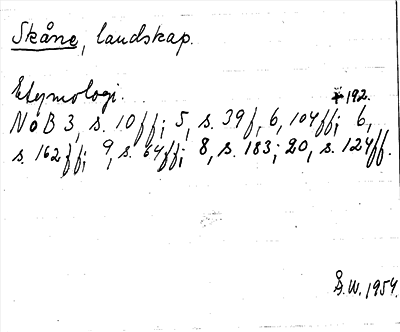 Skåne, landskap.
Etymologi.
192.
NoB 3, s. 10ff; 5, s. 39f, 6, 104ff; 6,
s. 162ff; 9, s. 64ff; 8, s. 183; 20, s. 124ff.
Å.W. 1954.